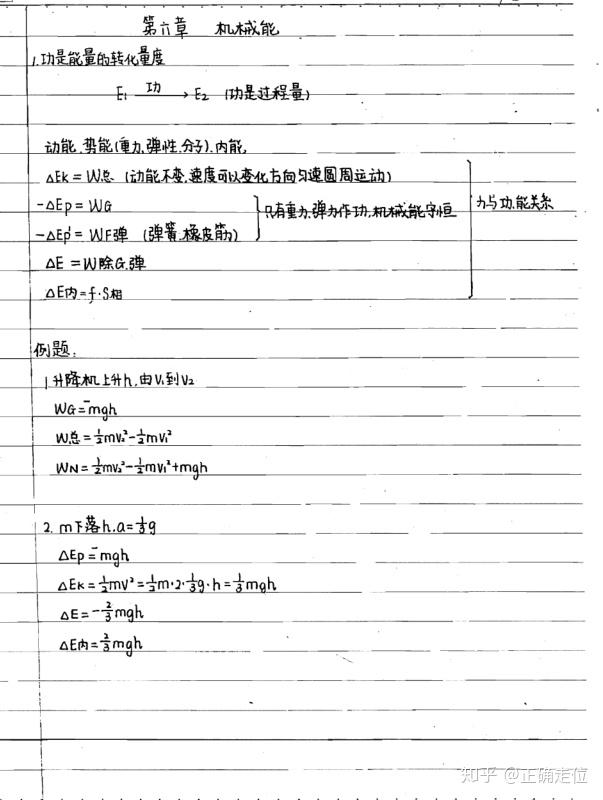 第六章 机械能
1.功是能量的转化量度
E₁ —功→ E₂ (功是过程量)
动能.势能(重力.弹性.分子).内能.
ΔEk=W总 (动能不变,速度可以变化方向匀速圆周运动)
-ΔEp=WG
只有重力.弹力作功,机械能守恒
力与功,能关系
-ΔEp'=WF弹 (弹簧.橡皮筋)
ΔE=W除G.弹
ΔE内=f·S相
例题:
1.升降机上升h.由V₁到V₂
WG=-mgh
W总=½mv₂²-½mv₁²
WN=½mv₂²-½mv₁²+mgh
2. m下落h.a=⅓g
ΔEp=-mgh
ΔEk=½mv²=½m·2·⅓g·h=⅓mgh
ΔE=-⅔mgh
ΔE内=⅔mgh
知乎 @正确走位